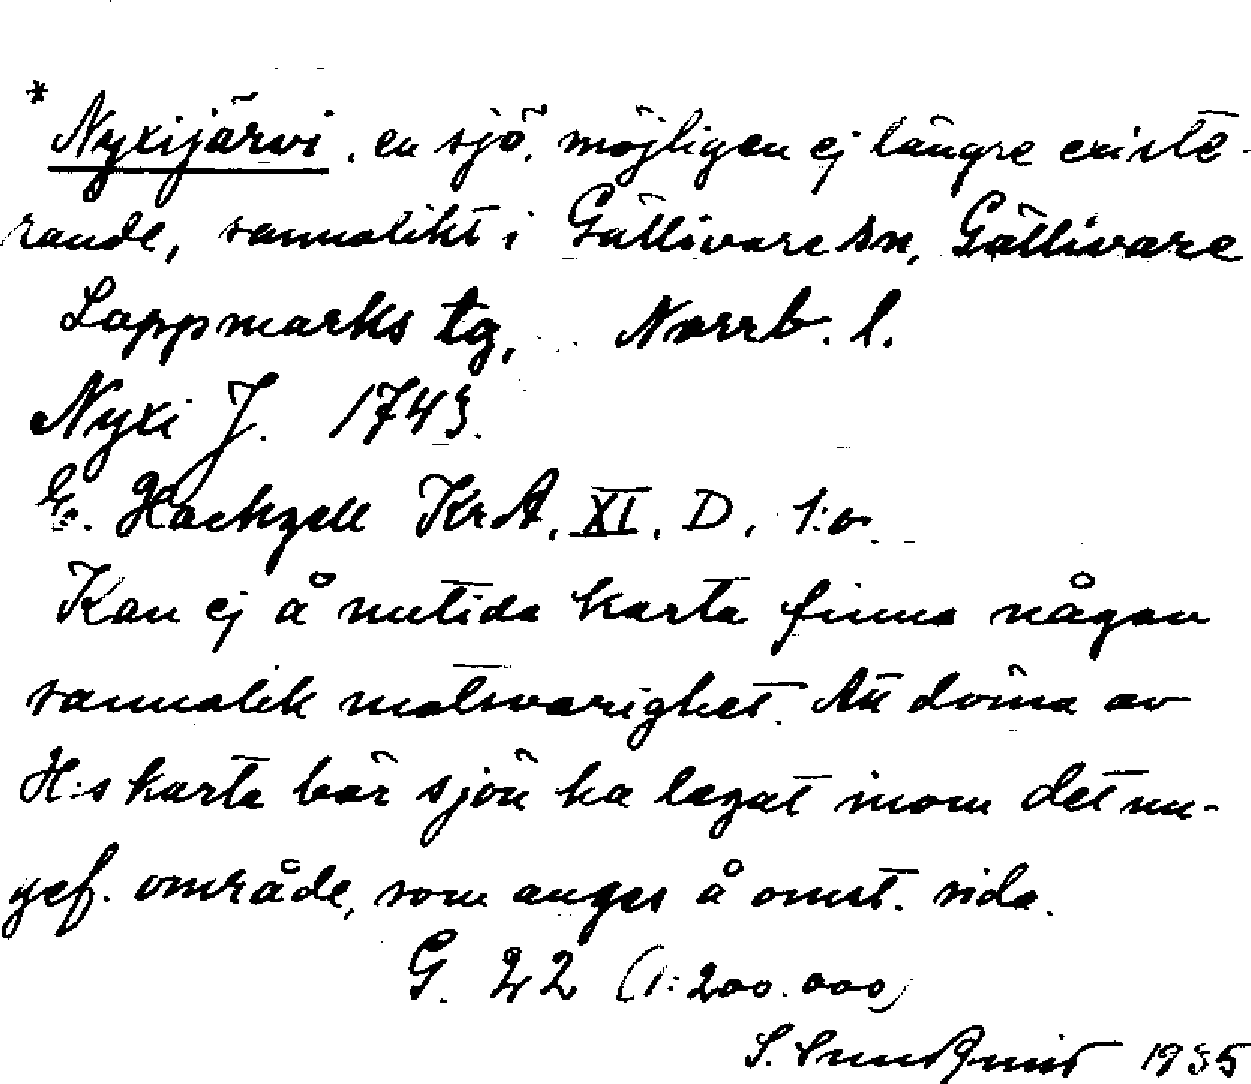 * Nyxijärvi, en sjö, möjligen ej längre existe-
rande, sannolikt i Gällivare sn, Gällivare
Lappmarks tg, Norrb. l.
Nyxi J. 1743.
E. Hackzell KrA. XI. D. 1:o.
Kan ej å nutida karta finna någon
sannolik motsvarighet. Att döma av
H:s karta bör sjön ha legat inom det un-
gef. område, som anges å omst. sida.
G. 22 (1:200.000)
S. Sundqvist 1935